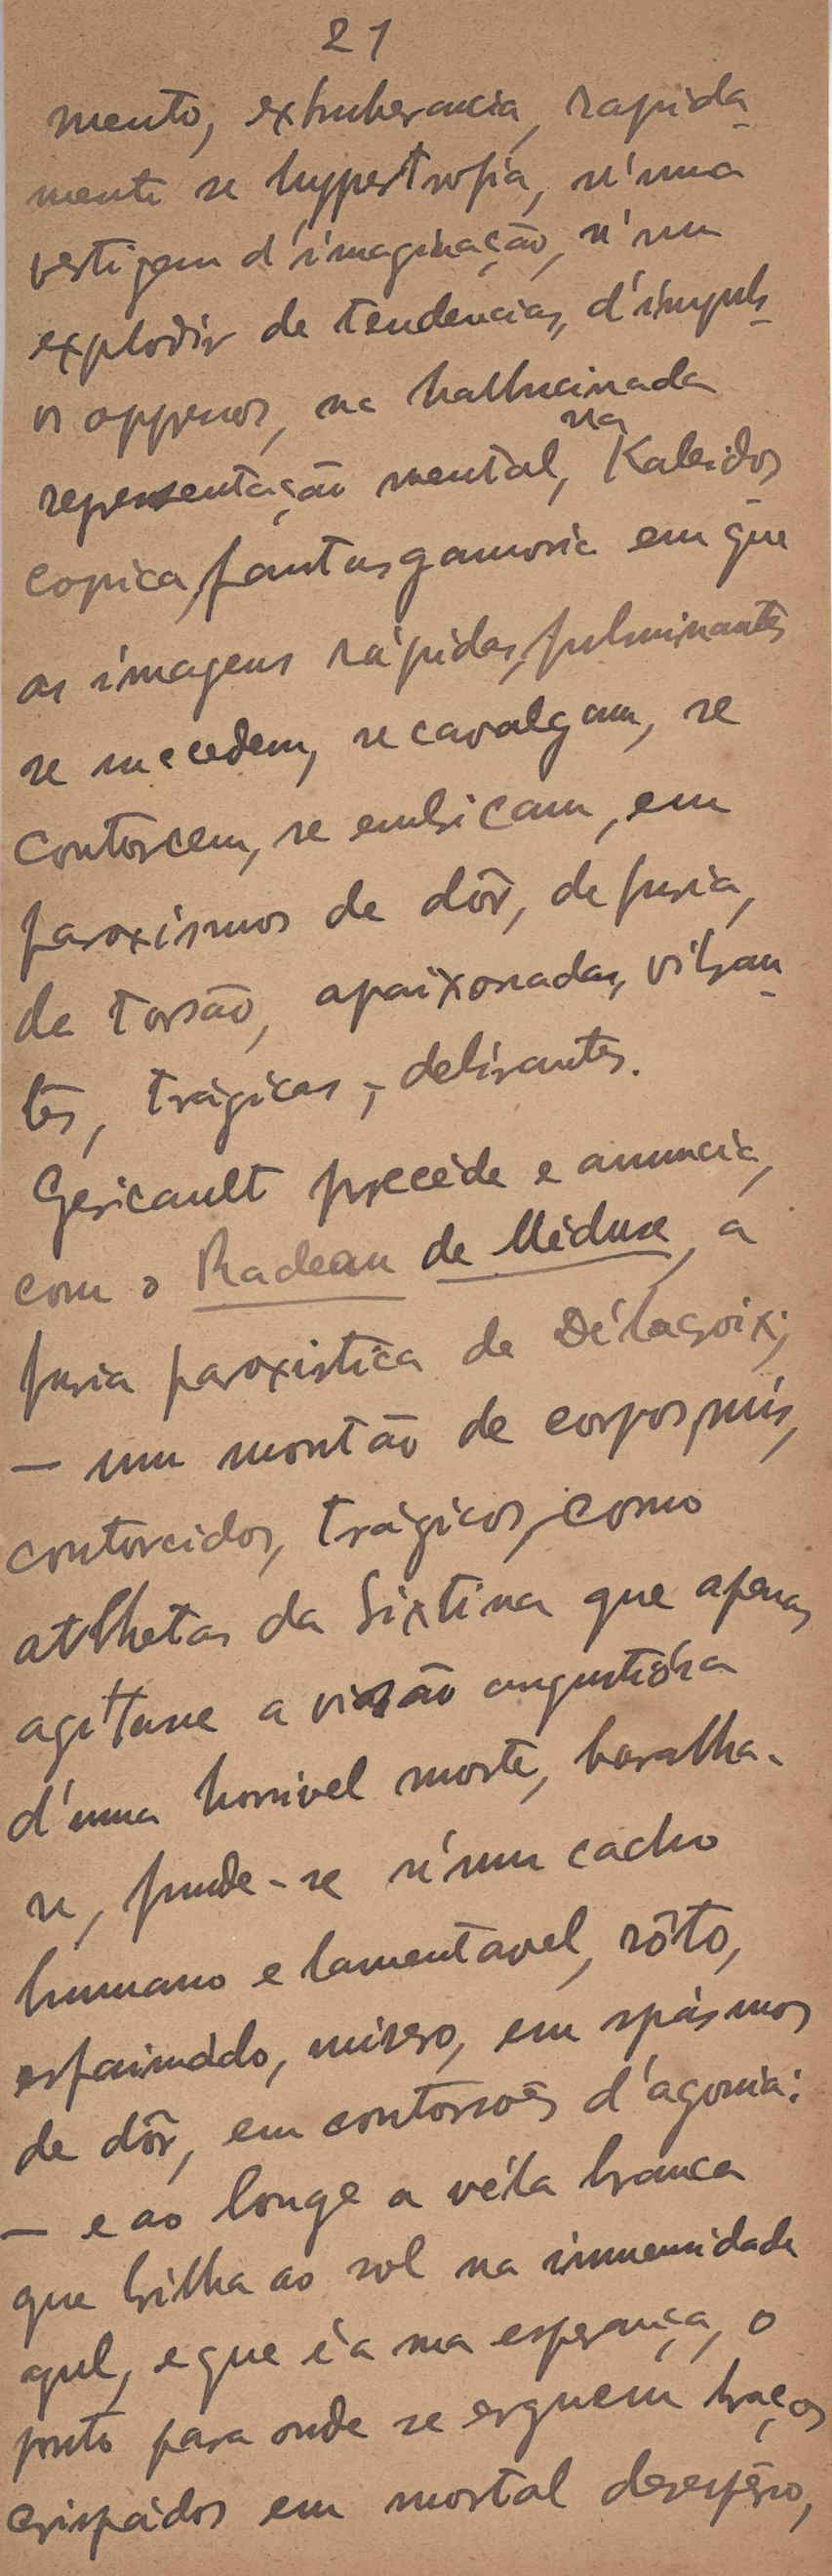 21
mento, exhuberancia, rapida-
mente se hypertrofía, n'uma
vertigem d'imaginação, n'um
explodir de tendencias, d'impul-
sos oppressos, na hallucinada
representação mental, na Kaleidos-
copica fantasgamoria em que
as imagens rápidas, fulminantes
se succedem, se cavalgam, se
contorcem, se embicam, em
paroxismos de dôr, de furia,
de torsão, apaixonadas, vibran-
tes, trágicas, – delirantes.
Gericault precéde e annuncia,
com o Radeau de Méduse, a
furia paroxistica de Délacroix;
— um montão de corpos nús,
contorcidos, trágicos, como
atlhetas da Sixtina que apenas
agittasse a visão angustiósa
d'uma horrivel morte, baralha-
se, funde-se n'um cacho
humano e lamentavel, rôto,
esfaimádo, misero, em spásmos
de dôr, em contorsões d'agonia:
— e ao longe a véla branca
que brilha ao sol na immensidade
azul, e que é a sua esperança, o
ponto para onde se erguem braços
crispádos em mortal desespêro,